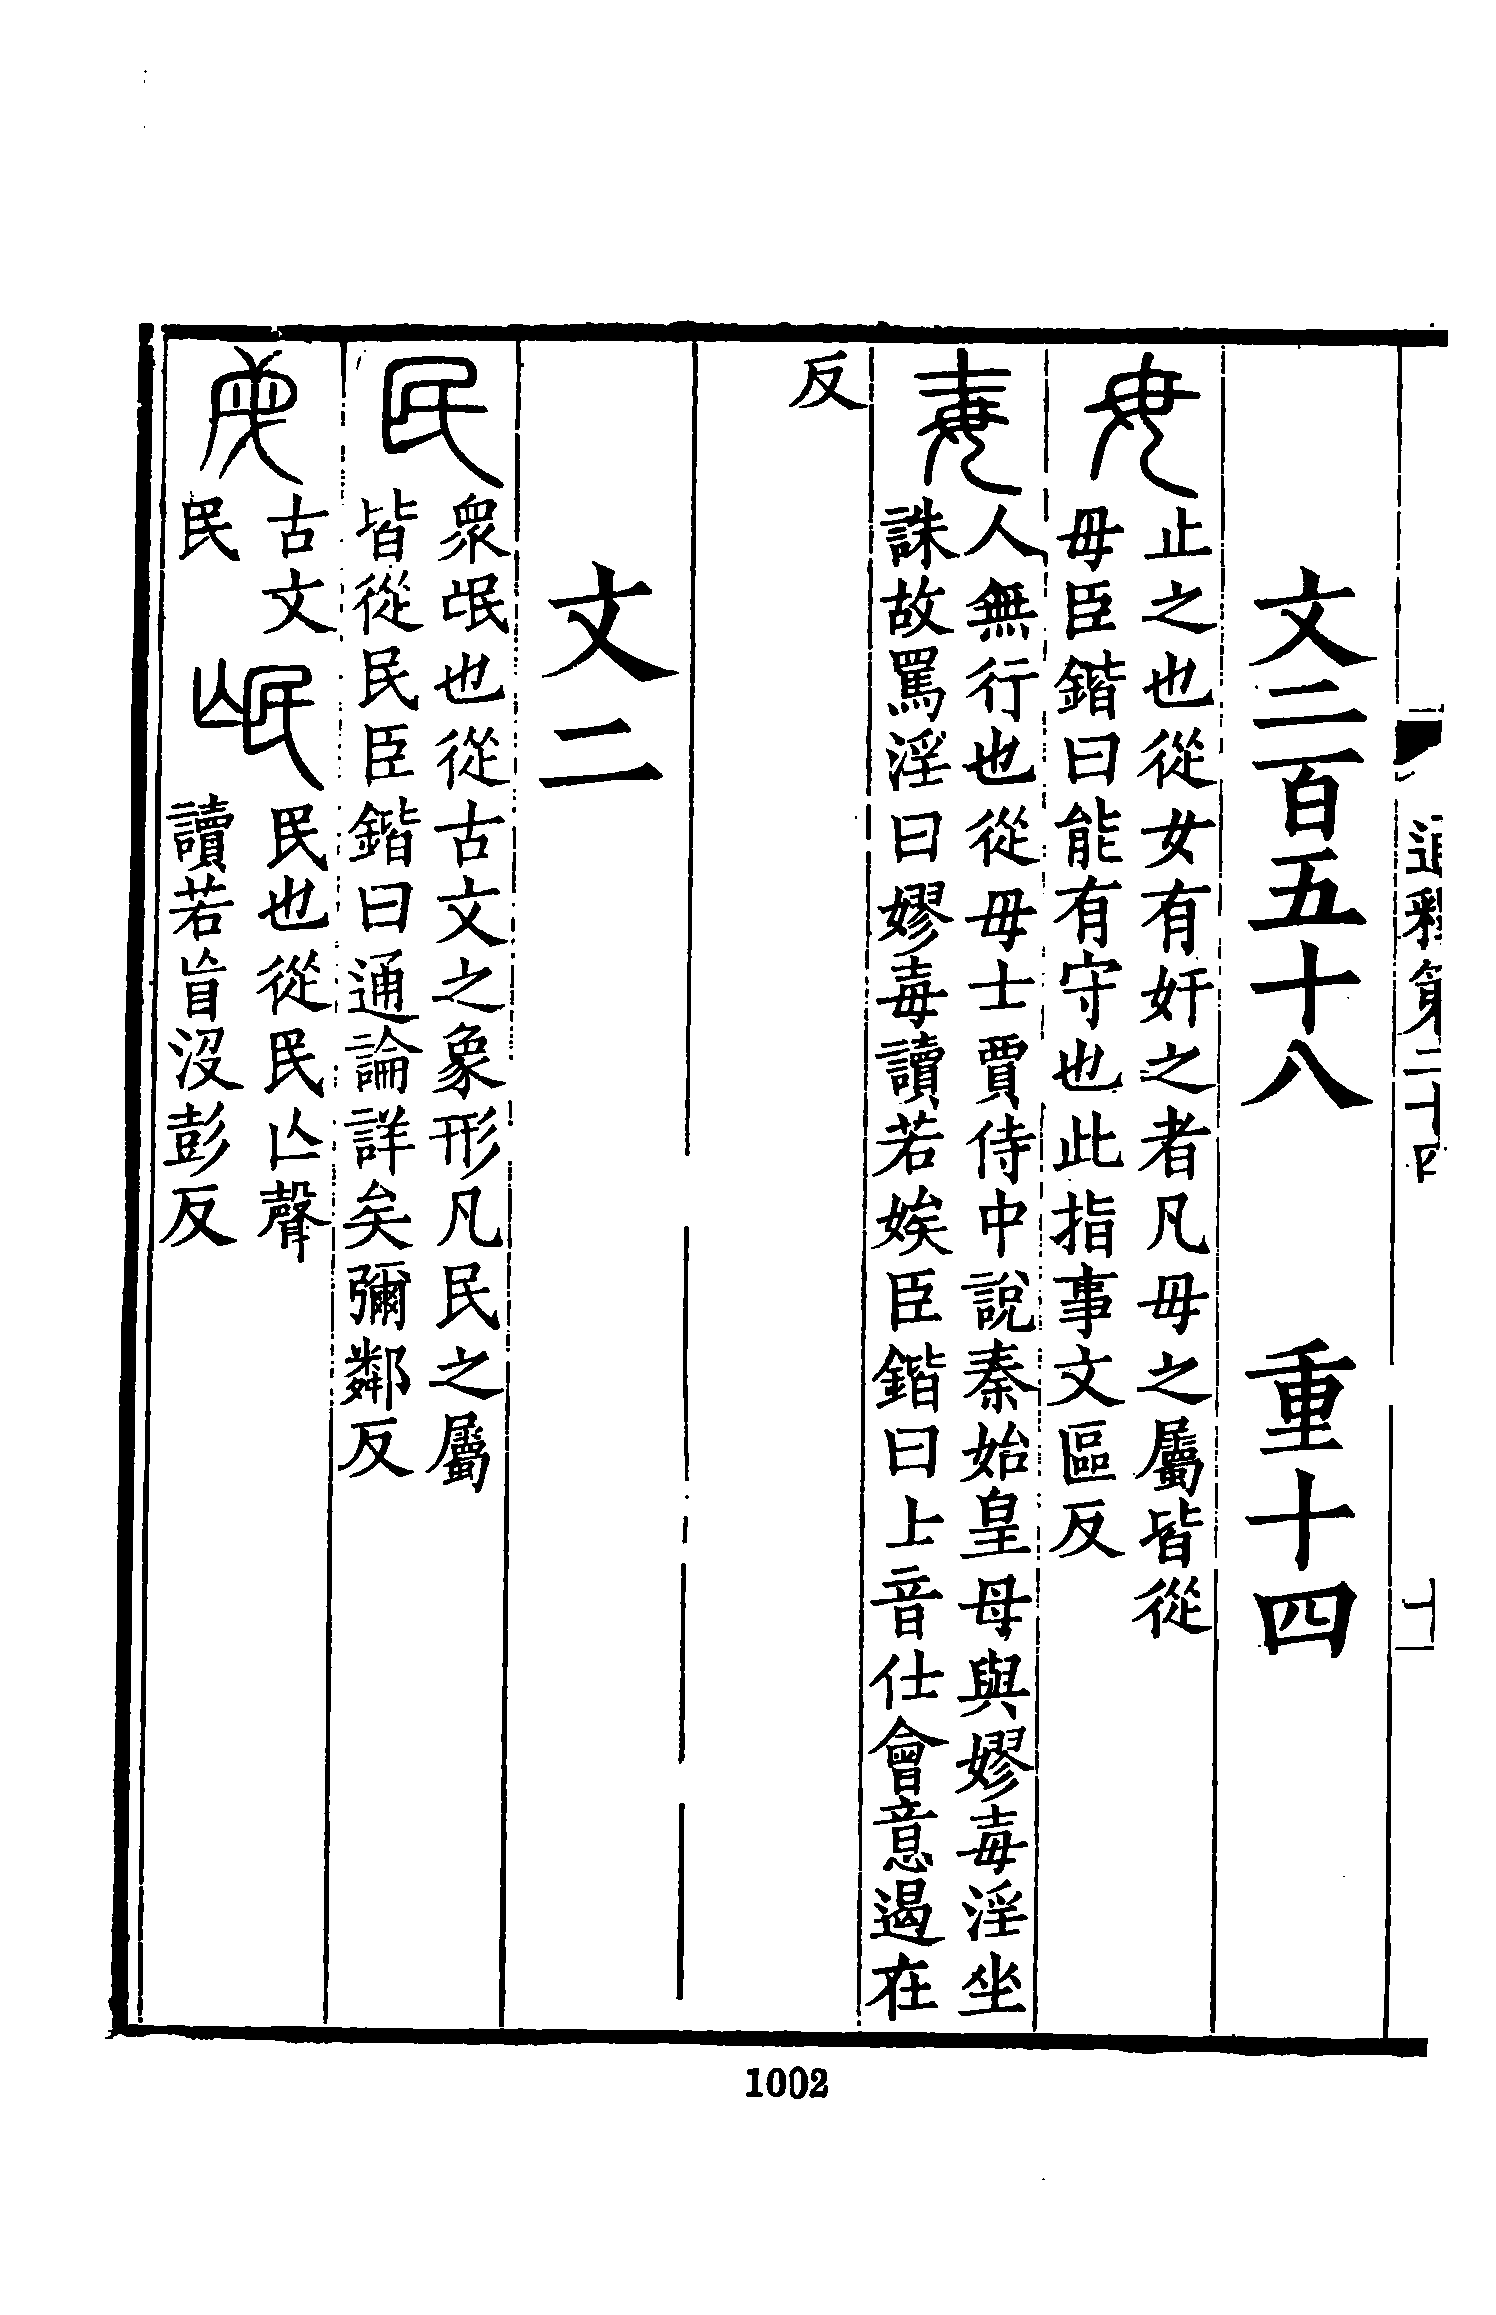 通釋第二十四
十一
文二百五十八 重十四
毋 止之也從女有奸之者凡毋之屬皆從
毋臣鍇曰能有守也此指事文區反
毐 人無行也從毋士賈侍中說秦始皇母與嫪毐淫坐
誅故罵淫曰嫪毐讀若娭臣鍇曰上音仕會意遏在
反
文二
民 衆氓也從古文之象形凡民之屬
皆從民臣鍇曰通論詳矣彌鄰反
古文
民
氓 民也從民亾聲
讀若盲沒彭反
1002